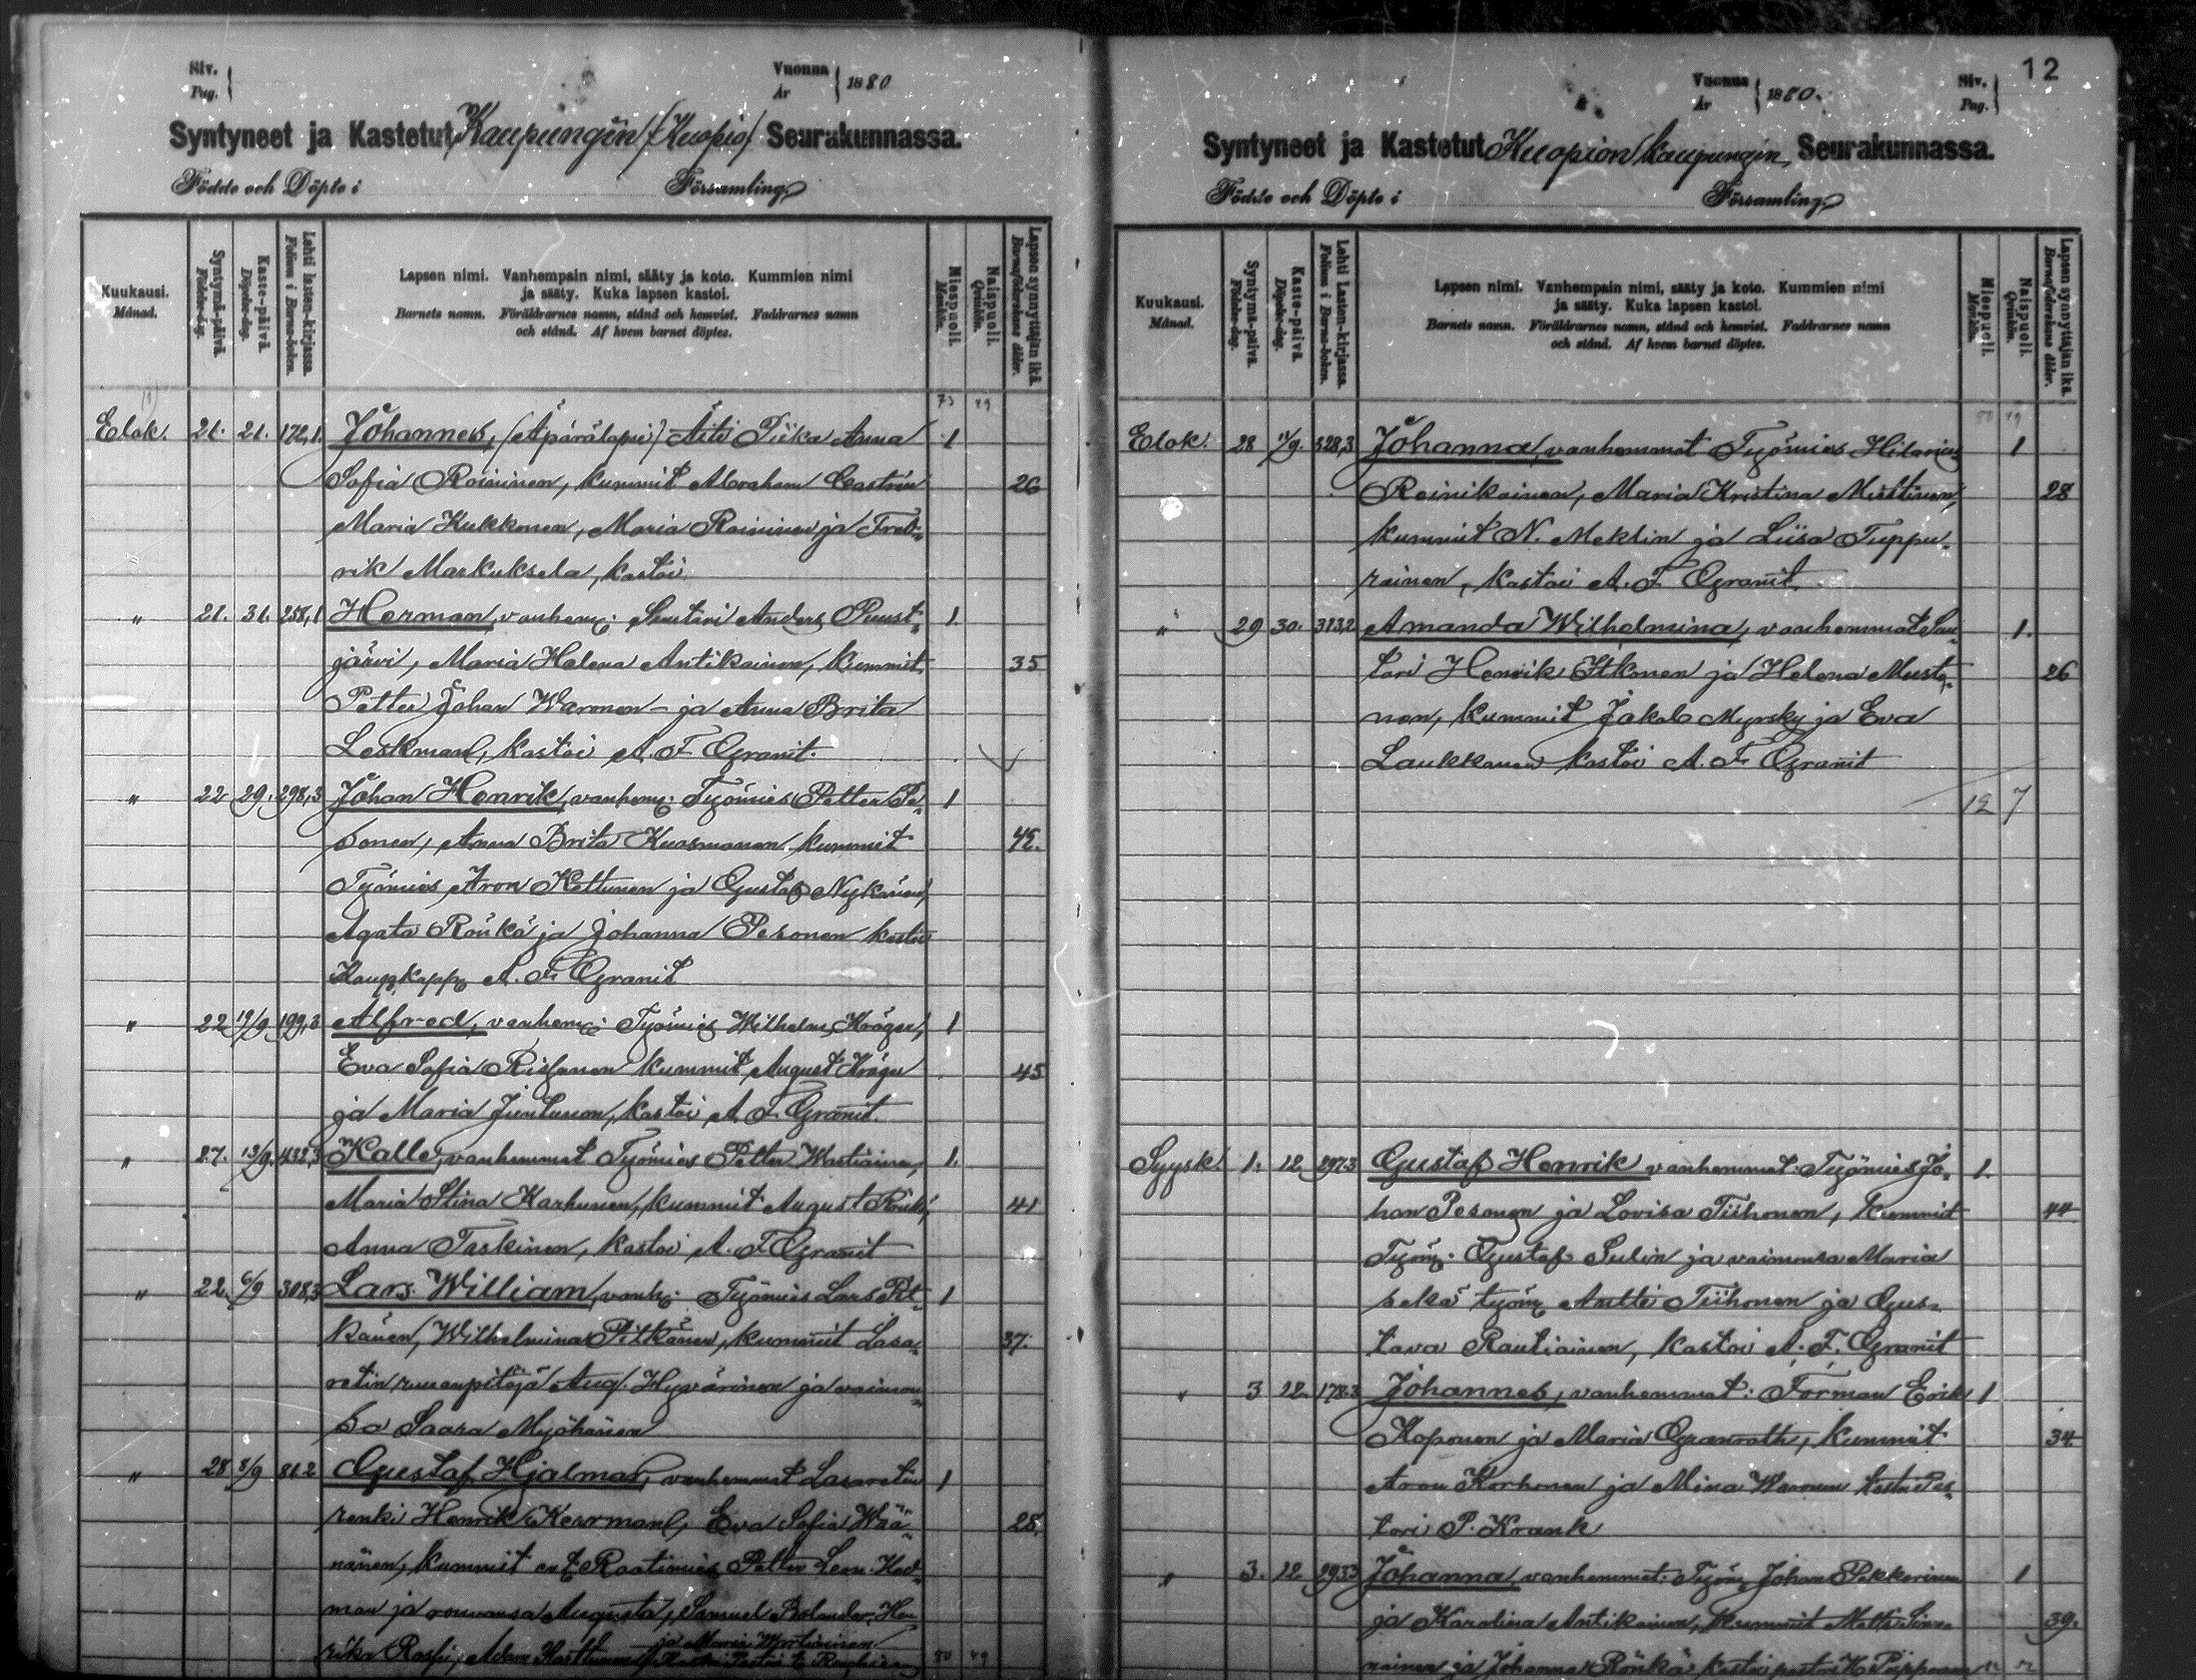 Siv. Pag. Vuonna År 1880
Syntyneet ja Kastetut Kaupungin (Kuopio) Seurakunnassa.
Födde och Döpte i Församling
Kuukausi. Månad.
Syntymä-päivä. Födelse-dag.
Kaste-päivä. Döpelse-dag.
Lehti lasten-kirjassa. Folium i Barna-boken.
Lapsen nimi. Vanhempain nimi, sääty ja koto. Kummien nimi
ja sääty. Kuka lapsen kastoi.
Barnets namn. Föräldrarnes namn, stånd och hemvist. Faddrarnes namn
och stånd. Af hvem barnet döptes.
Miespuoli. Mankön.
Naispuoli. Qvinkön.
Lapsen synnyttäjän ikä. Barnaföderskans ålder.
73 49
Elok. 21. 21. 172,1. Johannes, (Äpärälapsi) Äiti Piika Anna 1
Sofia Roininen, kummit Abraham Castrén 26
Maria Kukkonen, Maria Roininen ja Fred-
rik Markuksela, kastoi
" 21. 31. 258,1 Herman, vanhem: Suutari Anders Puust- 1.
järvi, Maria Helena Antikainen, kummit 35
Petter Johan Waronen - ja Anna Brita
Leskman, kastoi A. F. Granit.
" 22 29. 298,3 Johan Henrik, vanhem: Työmies Petter Pe- 1
sonen, Anna Brita Kuosmanen kummit 42.
Työmies Aron Kettunen ja Gustaf Nykänen,
Agata Rönkä ja Johanna Pesonen kastoi
Kaup.kapp. A. F. Granit
" 22 19/9 199,3 Alfred, vanhem: Työmies Wilhelm Kröger, 1
Eva Sofia Rissanen kummit August Kröger 45
ja Maria Juntunen, kastoi A. F. Granit.
" 27. 13/9. 432,3 Kalle, vanhemmat Työmies Petter Wartiainen, 1.
Maria Stina Karhunen, kummit August Rönkä, 41
Anna Taskinen, kastoi A. F. Granit
" 22. 6/9 308,3 Lars William, vanh: Työmies Lars Pit- 1
känen, Wilhelmina Pitkänen, kummit Lasa- 37.
retin ruuanpitäjä Aug. Hyvärinen ja vaimon-
sa Saara Myöhänen
" 28 8/9 81,2 Gustaf Hjalmar, vanhemmat Lasaretin 1
renki Henrik Kesorman, Eva Sofia Wää- 28.
nänen, kummit Raatimies Petter Leon. Hed-
man ja rouvansa Augusta, Samuel Bolander, Hen-
rika Raski, Adam ja Maria Wartiainen
50 49
12
Vuonna År 1880. Siv. Pag.
Syntyneet ja Kastetut Kuopion Kaupungin Seurakunnassa.
Födde och Döpte i Församling
Kuukausi. Månad.
Syntymä-päivä. Födelse-dag.
Kaste-päivä. Döpelse-dag.
Lehti Lasten-kirjassa. Folium i Barna-boken.
Lapsen nimi. Vanhempain nimi, sääty ja koto. Kummien nimi
ja sääty. Kuka lapsen kastoi.
Barnets namn. Föräldrarnes namn, stånd och hemvist. Faddrarnes namn
och stånd. Af hvem barnet döptes.
Miespuoli. Mankön.
Naispuoli. Qvinkön.
Lapsen synnyttäjän ikä. Barnaföderskans ålder.
80 49
Elok. 28 11/9. 528,3 Johanna, vanhemmat Työmies Hilarius 1
Reinikainen, Maria Kristina Miettinen, 28
kummit N. Meklin ja Liisa Tuppu-
rainen, kastoi A. F. Granit
" 29 30. 313,2 Amanda Wilhelmina, vanhemmat Suu- 1.
tari Henrik Itkonen ja Helena Musto- 26
nen, kummit Jakob Myrsky ja Eva
Laukkanen kastoi A. F. Granit
12 7
Syysk. 1. 12 297,3 Gustaf Henrik vanhemmat: Työmies Jo- 1.
han Pesonen ja Lovisa Tiihonen, kummit 44
Työm: Gustaf Sulin ja vaimonsa Maria
sekä työm Antti Tiihonen ja Gus-
tava Rautiainen, kastoi A. F. Granit
" 3 12. 178,3 Johannes, vanhemmat: Forman Erik 1
Koponen ja Maria Granroth, kummit 34.
Aron Korhonen ja Mina Waronen kastoi Pas-
tori P. Krank
" 3. 12 293,3 Johanna, vanhemmat: Työm Johan Pekkarinen 1
ja Karolina Antikainen, kummit Matti 39.
ja Johanna Rönkä, kastoi pastori K. Piipponen